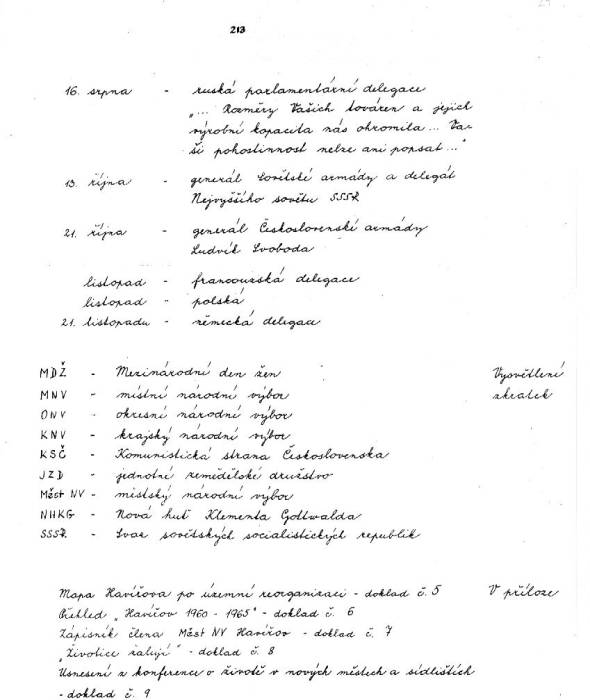 213
16. srpna - ruská parlamentární delegace
"... Rozměry Vašich továren a jejich
výrobní kapacita nás ohromila... Va-
ší pohostinnost nelze ani popsat..."
13. října - generál Sovětské armády a delegát
Nejvyššího sovětu SSSR
21. října - generál Československé armády
Ludvík Svoboda
listopad - francouzská delegace
listopad - polská
21. listopadu - německá delegace
MDŽ - Mezinárodní den žen Vysvětlení
MNV - místní národní výbor zkratek
ONV - okresní národní výbor
KNV - krajský národní výbor
KSČ - Komunistická strana Československa
JZD - jednotné zemědělské družstvo
Měst NV - městský národní výbor
NHKG - Nová huť Klementa Gottwalda
SSSR - Svaz sovětských socialistických republik
Mapa Havířova po územní reorganizaci - doklad č. 5 V příloze
Přehled "Havířov 1960 - 1965" - doklad č. 6
Zápisník člena Měst NV Havířov - doklad č. 7
"Životice žalují" - doklad č. 8
Usnesení z konference o životě v nových městech a sídlištích
- doklad č. 9